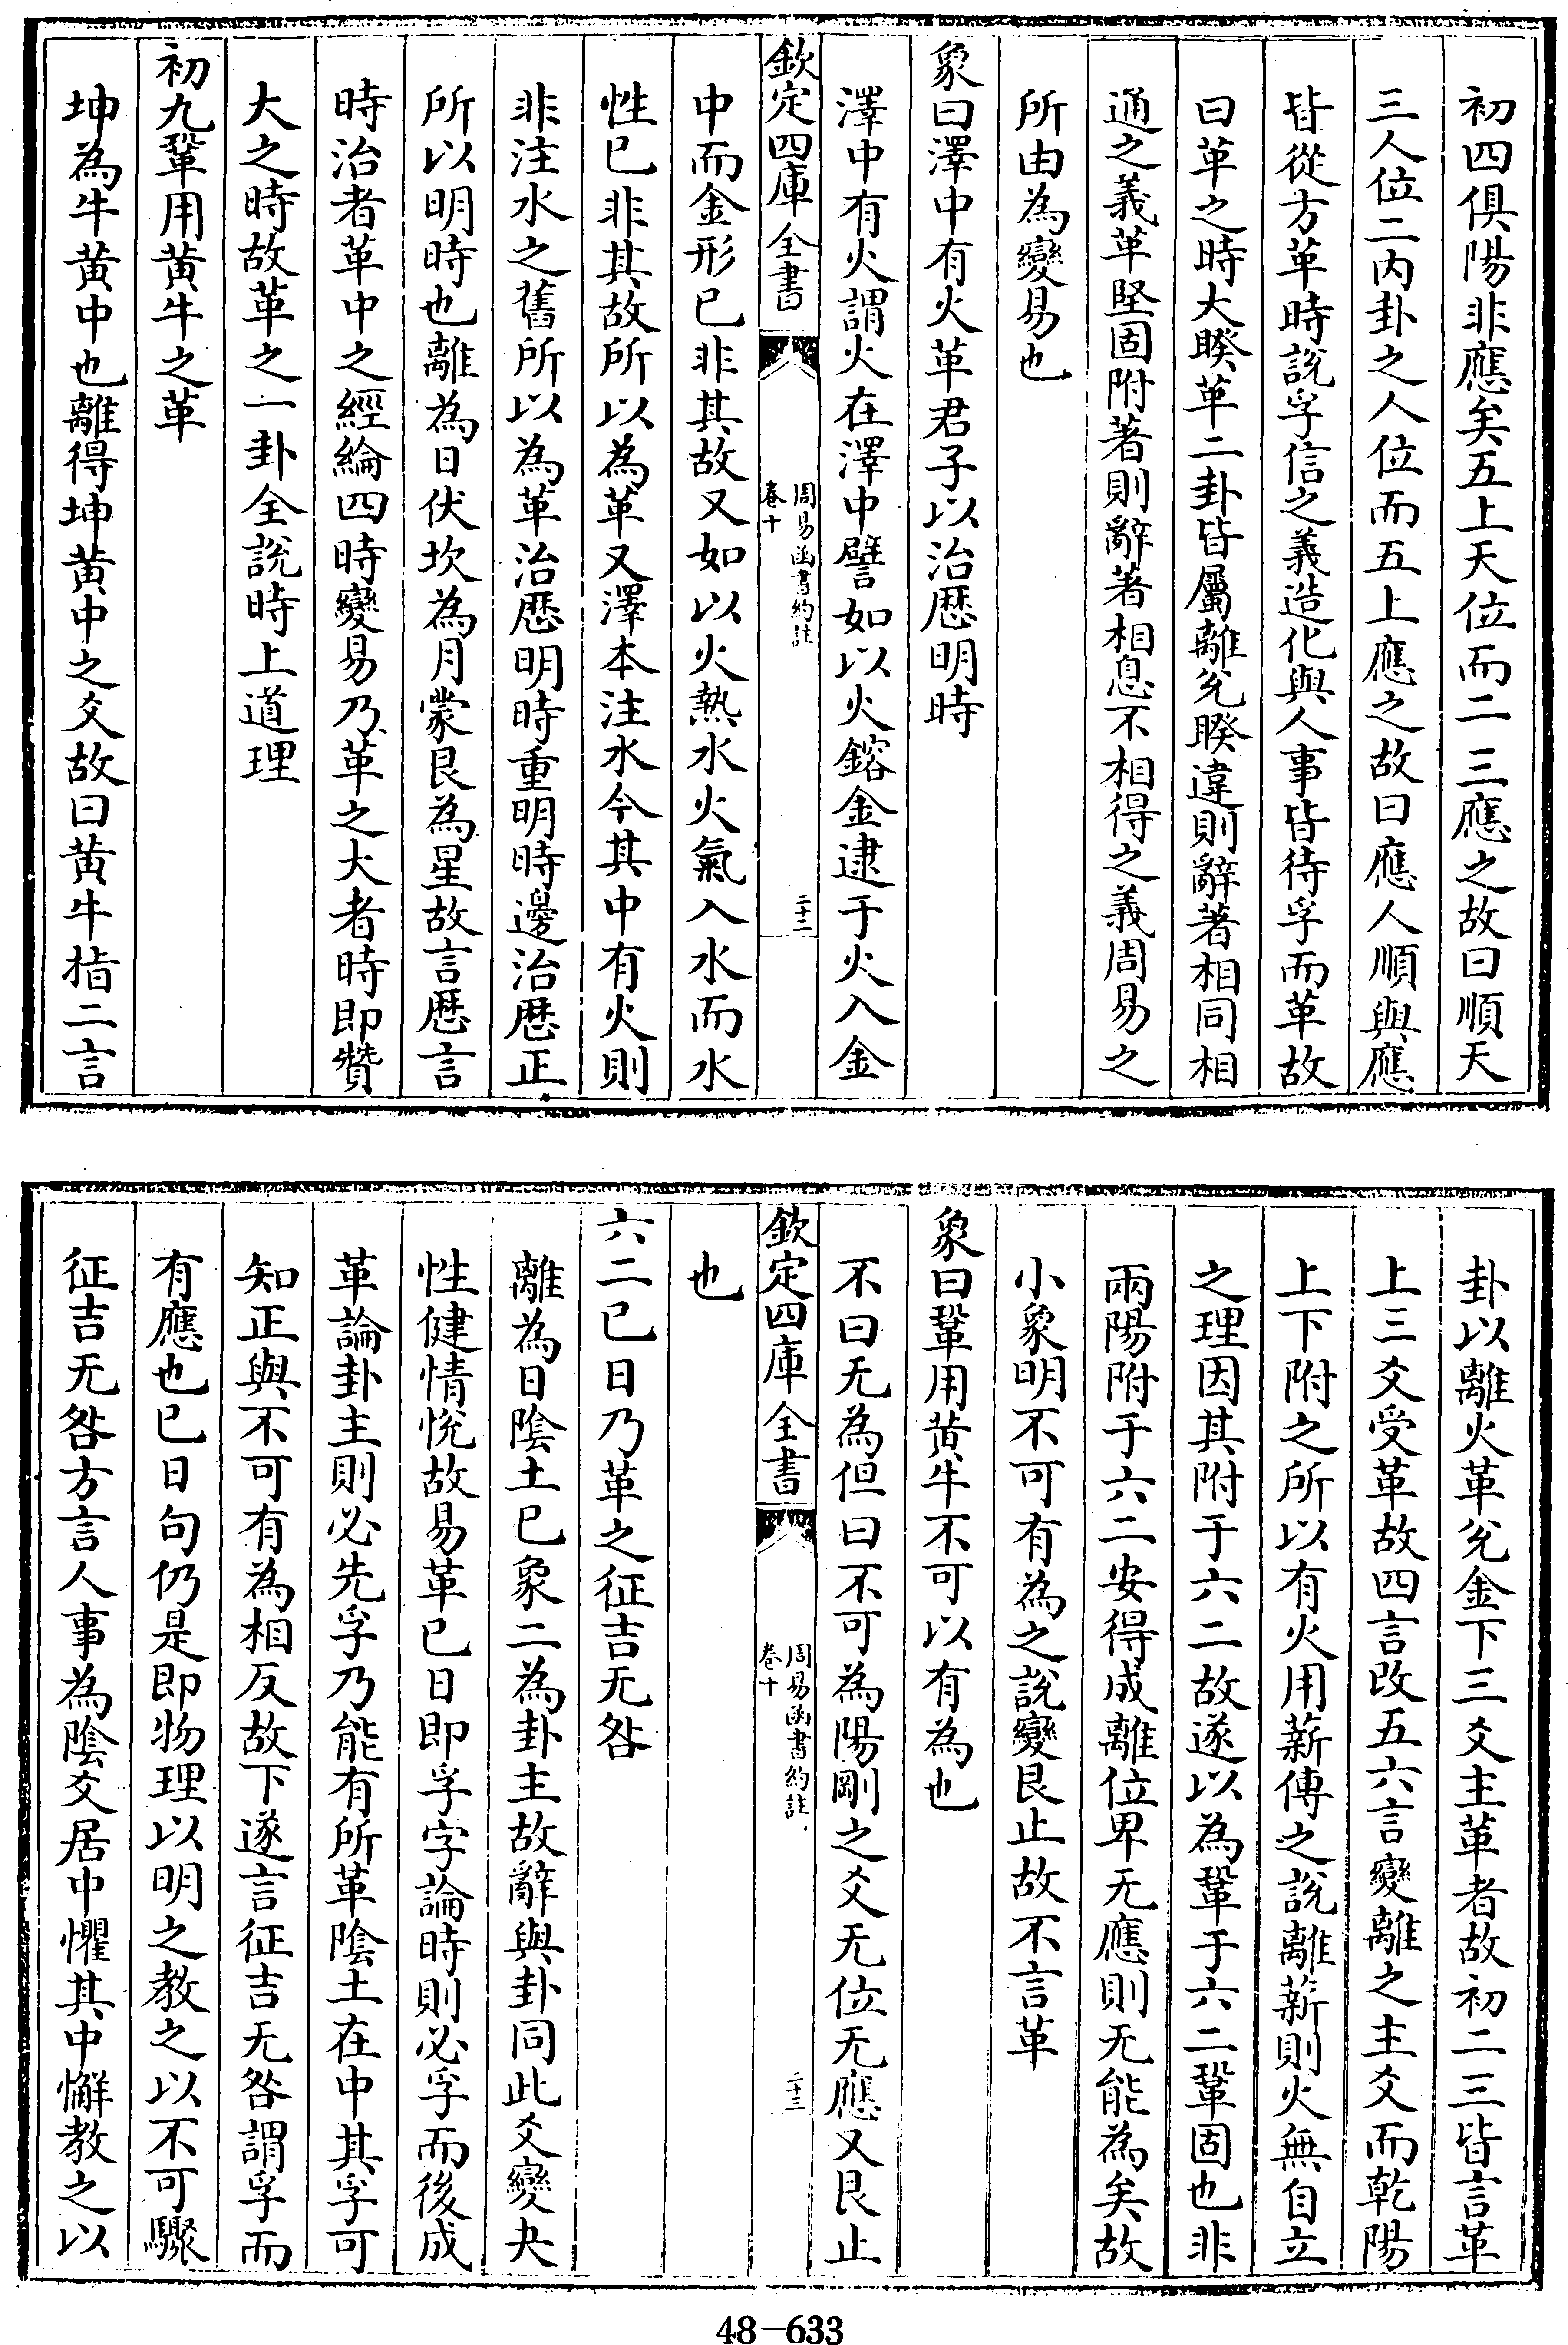 初四俱陽非應矣五上天位而二三應之故曰順天
三人位二内卦之人位而五上應之故曰應人順與應
皆從方革時說孚信之義造化與人事皆待孚而革故
曰革之時大睽革二卦皆屬離兊睽違則辭著相同相
通之義革堅固附著則辭著相息不相得之義周易之
所由為變易也
象曰澤中有火革君子以治厯明時
澤中有火謂火在澤中譬如以火鎔金逮于火入金
欽定四庫全書
周易函書約註
卷十
二十二
中而金形已非其故又如以火熱水火氣入水而水
性已非其故所以為革又澤本注水今其中有火則
非注水之舊所以為革治厯明時重明時邊治厯正
所以明時也離為日伏坎為月蒙艮為星故言厯言
時治者革中之經綸四時變易乃革之大者時即贊
大之時故革之一卦全說時上道理
初九鞏用黄牛之革
坤為牛黄中也離得坤黄中之爻故曰黄牛指二言
卦以離火革兊金下三爻主革者故初二三皆言革
上三爻受革故四言改五六言變離之主爻而乾陽
上下附之所以有火用薪傳之說離薪則火無自立
之理因其附于六二故遂以為鞏于六二鞏固也非
兩陽附于六二安得成離位卑无應則无能為矣故
小象明不可有為之說變艮止故不言革
象曰鞏用黄牛不可以有為也
不曰无為但曰不可為陽剛之爻无位无應又艮止
欽定四庫全書
周易函書約註
卷十
二十三
也
六二已日乃革之征吉无咎
離為日陰土已象二為卦主故辭與卦同此爻變夬
性健情悅故易革已日即孚字論時則必孚而後成
革論卦主則必先孚乃能有所革陰土在中其孚可
知正與不可有為相反故下遂言征吉无咎謂孚而
有應也已日句仍是即物理以明之教之以不可驟
征吉无咎方言人事為陰爻居中懼其中懈教之以
48-633